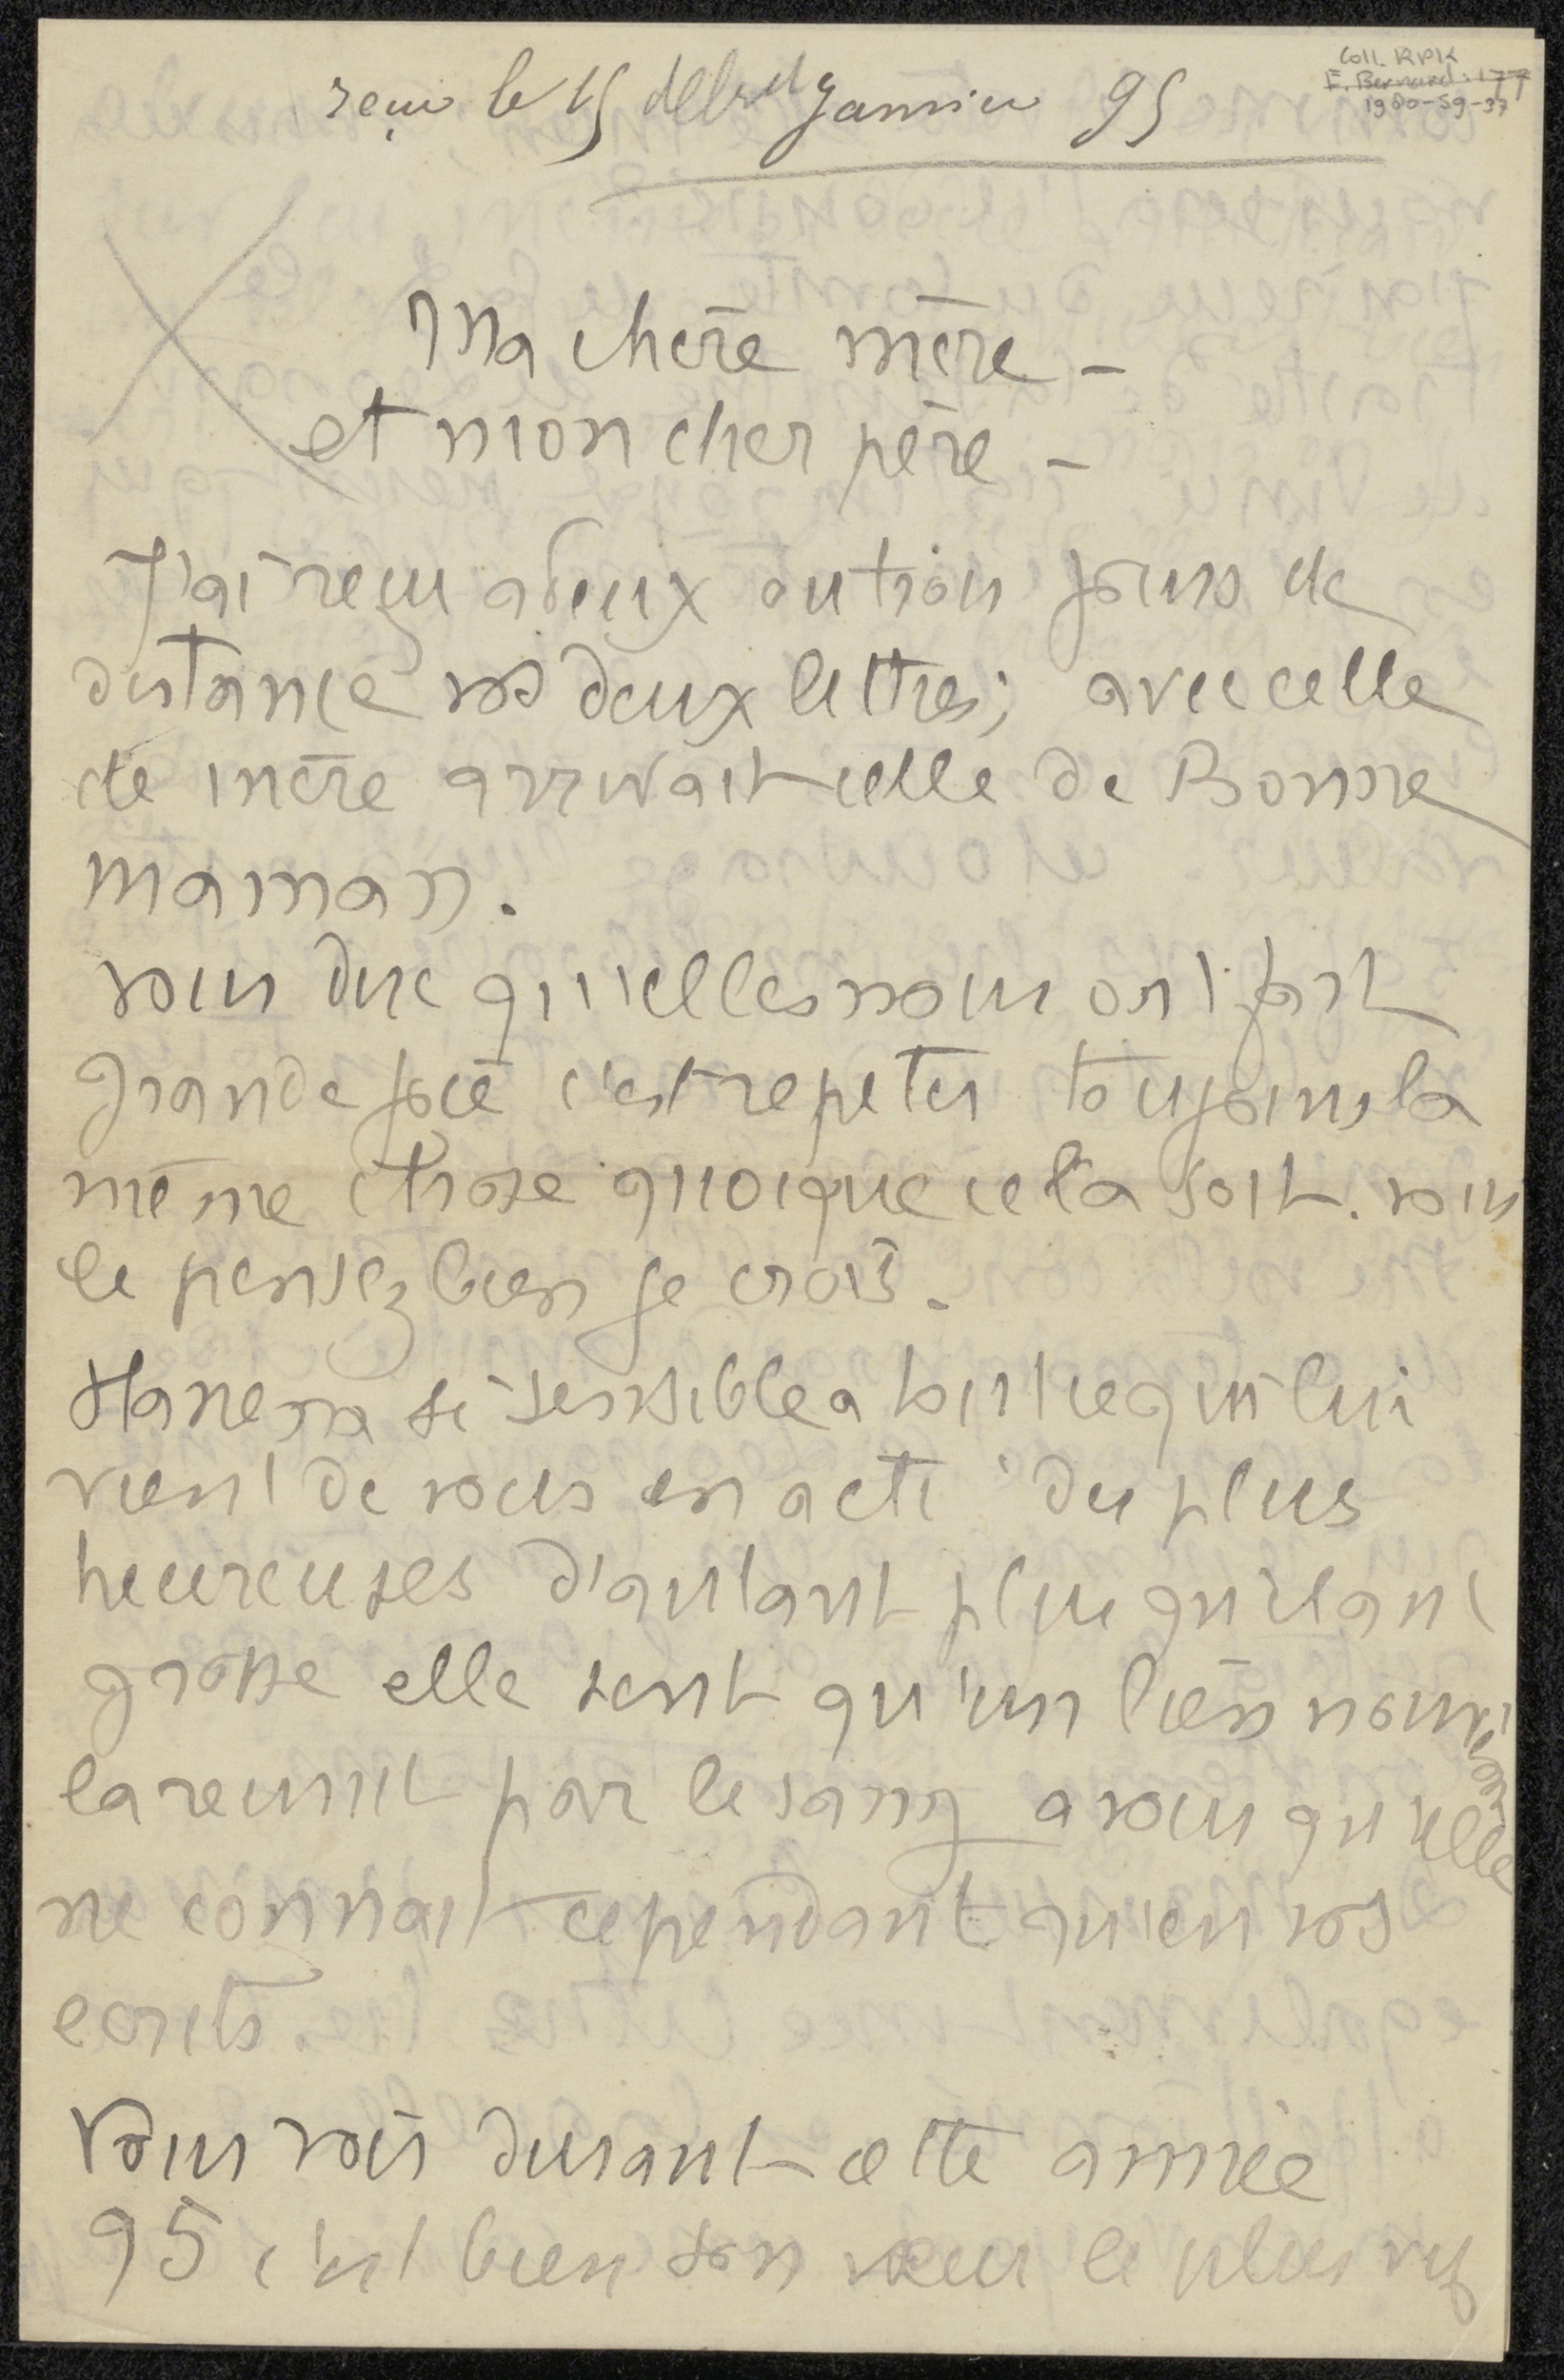 reçu le 15 janvier 95
Coll. RPK
E. Bernard: 177
1980-59-37
Ma chère mère -
et mon cher père -
J'ai reçu a deux ou trois jours de
distance vos deux lettres; avec celle
de mère arrivait celle de Bonne
maman.
vous dire qu'elles nous ont fait
grande joie c'est repeter toujours la
même chose quoique cela soit. vous
le pensez bien je crois.
Hanena si sensible a tout ce qui lui
vient de vous en a été des plus
heureuses d'autant plus qu'etant
grosse elle sent qu'un lien nouveau
la reunit par le sang a vous qu'elle
ne connait cependant qu'en vos
ecrits.
Vous voir durant cette année
95 c'est bien son vœu le plus vif